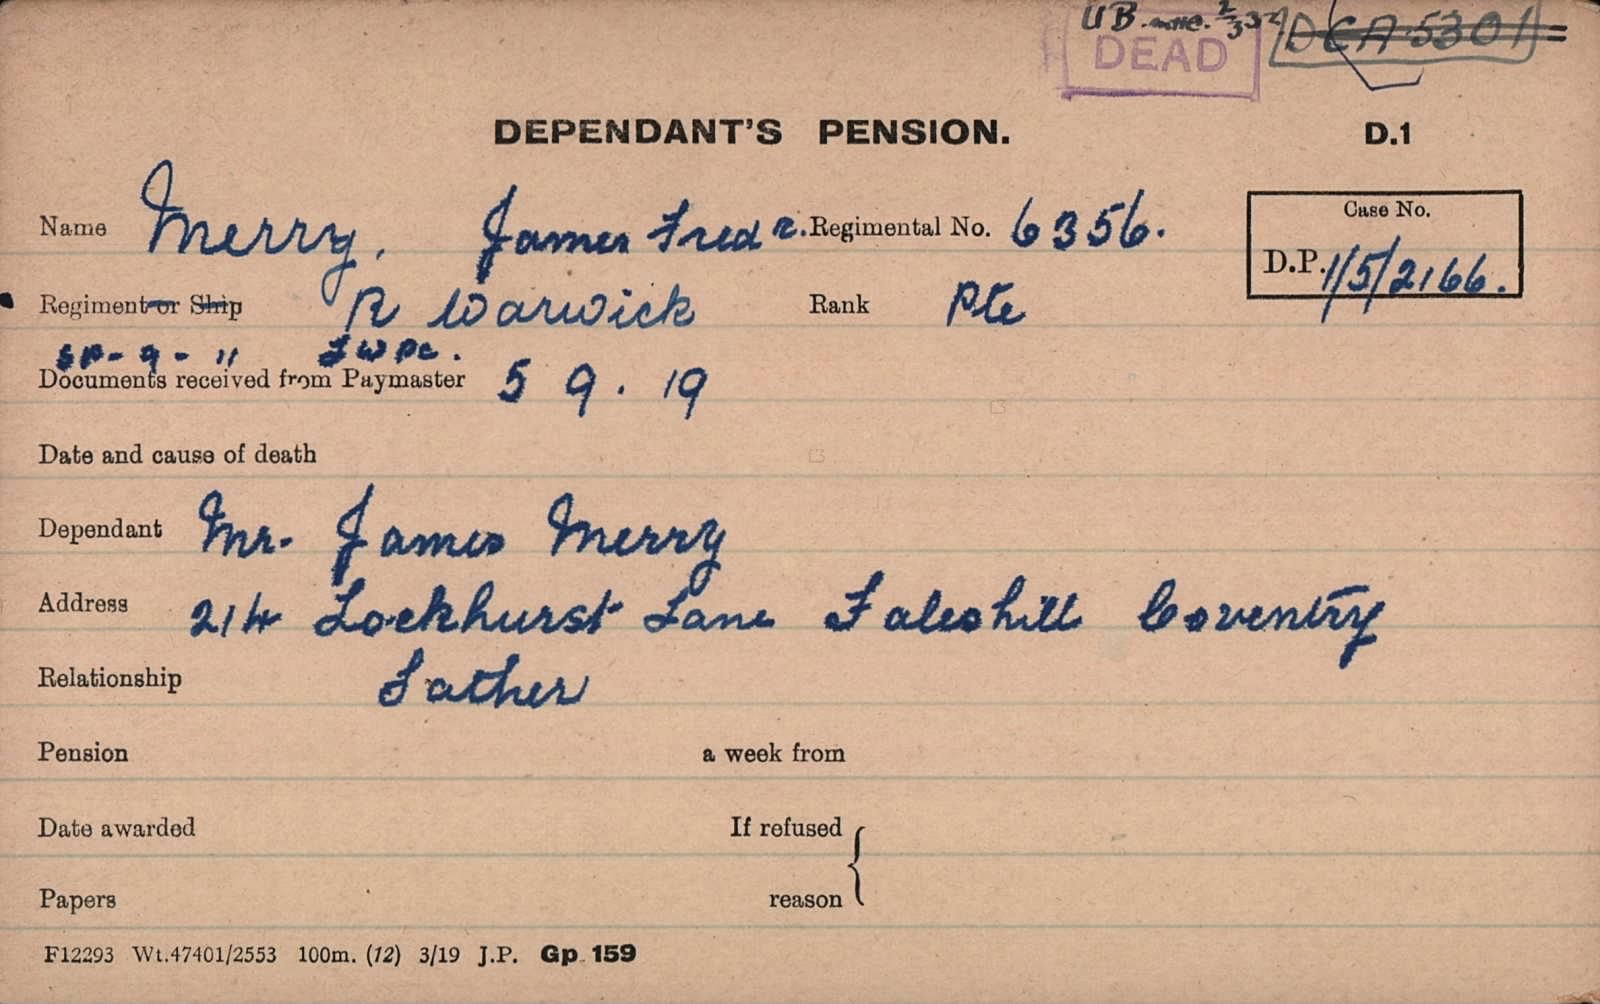 UB. 2/3 32 DCA 5301
DEAD
DEPENDANT'S PENSION. D.1
Name Merry, James Fredr. Regimental No. 6356. Case No.
D.P. 1/5/2166.
Regiment or Ship R Warwick Rank Pte
Documents received from Paymaster 5 9. 19
Date and cause of death
Dependant Mr. James Merry
Address 214 Lockhurst Lane Foleshill Coventry
Relationship Father
Pension a week from
Date awarded If refused
Papers reason
F12293 Wt.47401/2553 100m. (12) 3/19 J.P. Gp. 159